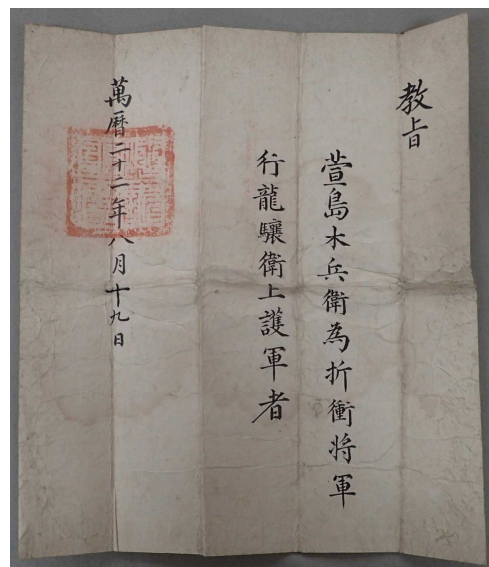 教旨
萱島木兵衛為折衝将軍
行龍驤衛上護軍者
萬曆二十二年八月十九日